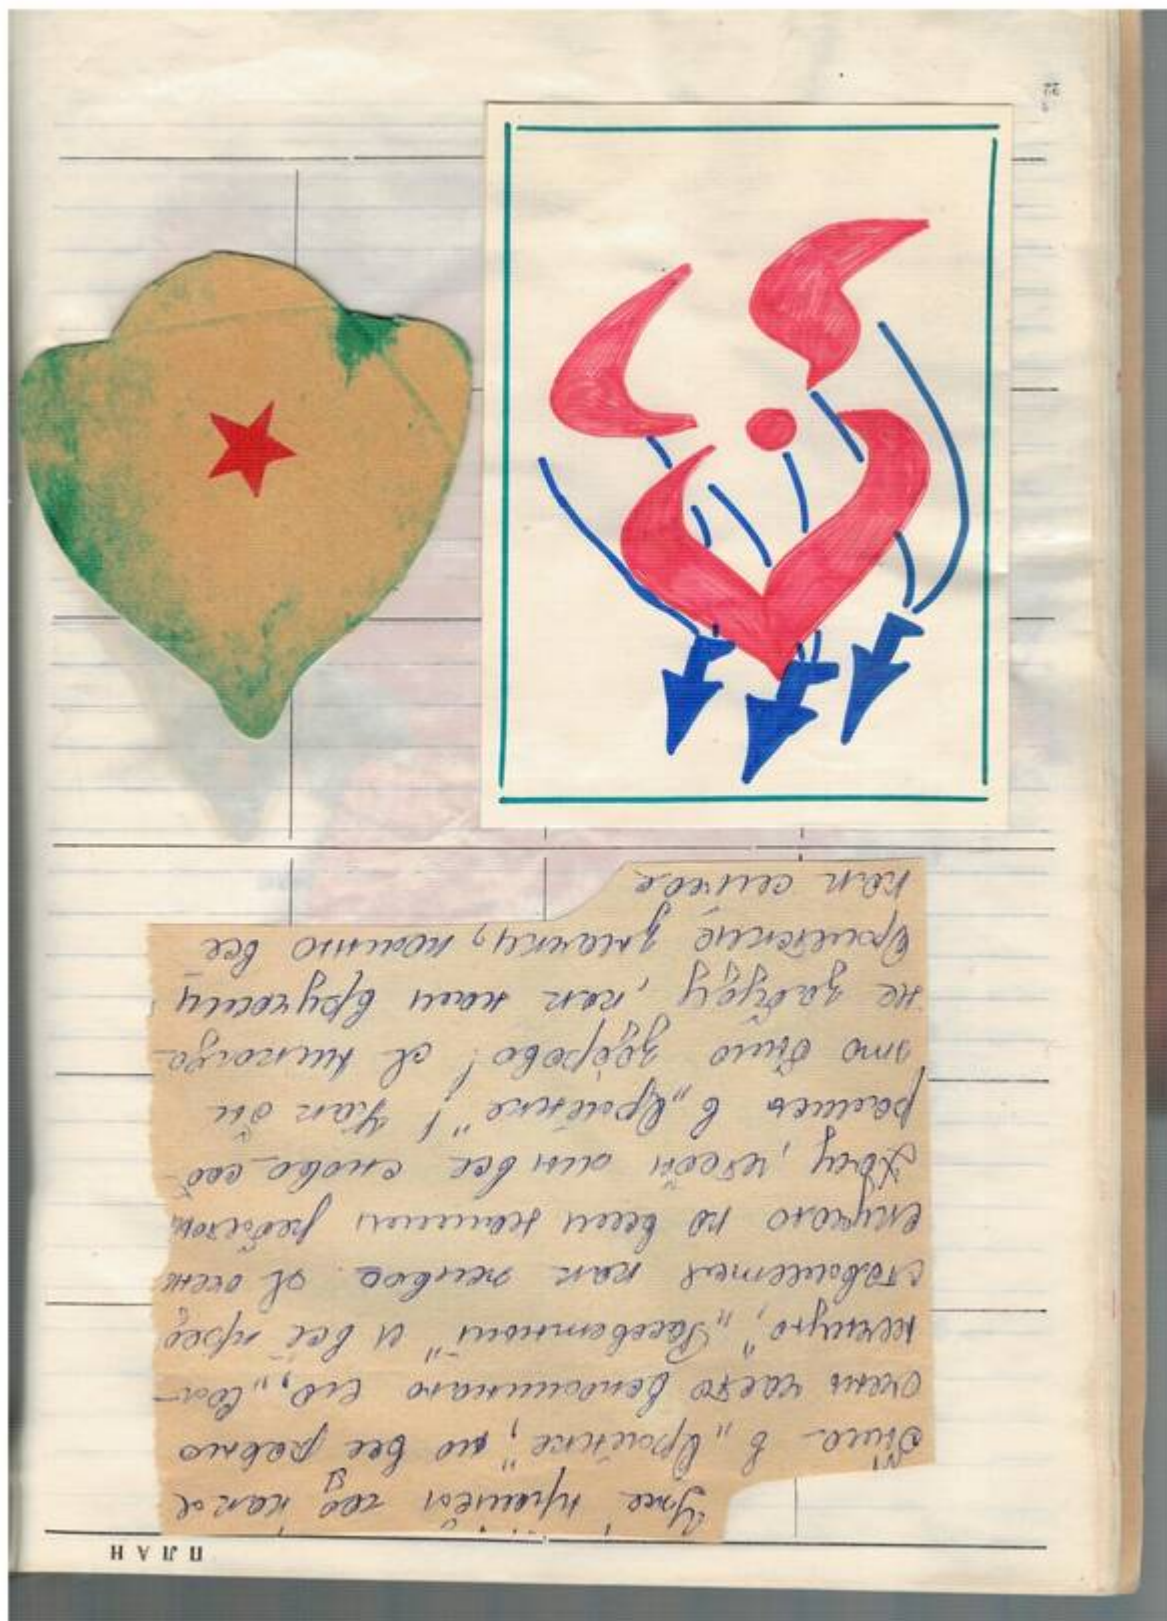 ПЛАН
Уже прошёл год как я
была в „Орлёнке", но все равно
очень часто вспоминаю его, „Сол-
нечную", „Рассветный" и всё пред
ставляется как живое. Я очень
скучаю по всем нашим ребятам
Хочу, чтобы мы все снова соб-
рались в „Орлёнке"! Как бы
это было здорово! Я никогда
не забуду, как нам вручали
Орлятские значки, помню все
как сейчас